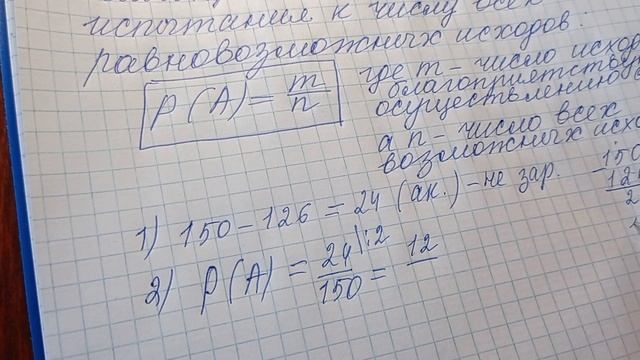 испытания к числу всех
равновозможных исходов.
P(A) = m/n
где m - число исход
благоприятству
осуществлению
а n - число всех
возможных исхо
1) 150 - 126 = 24 (ак.) - не зар.
150
12
2
2) P(A) = 24\:2/150 = 12